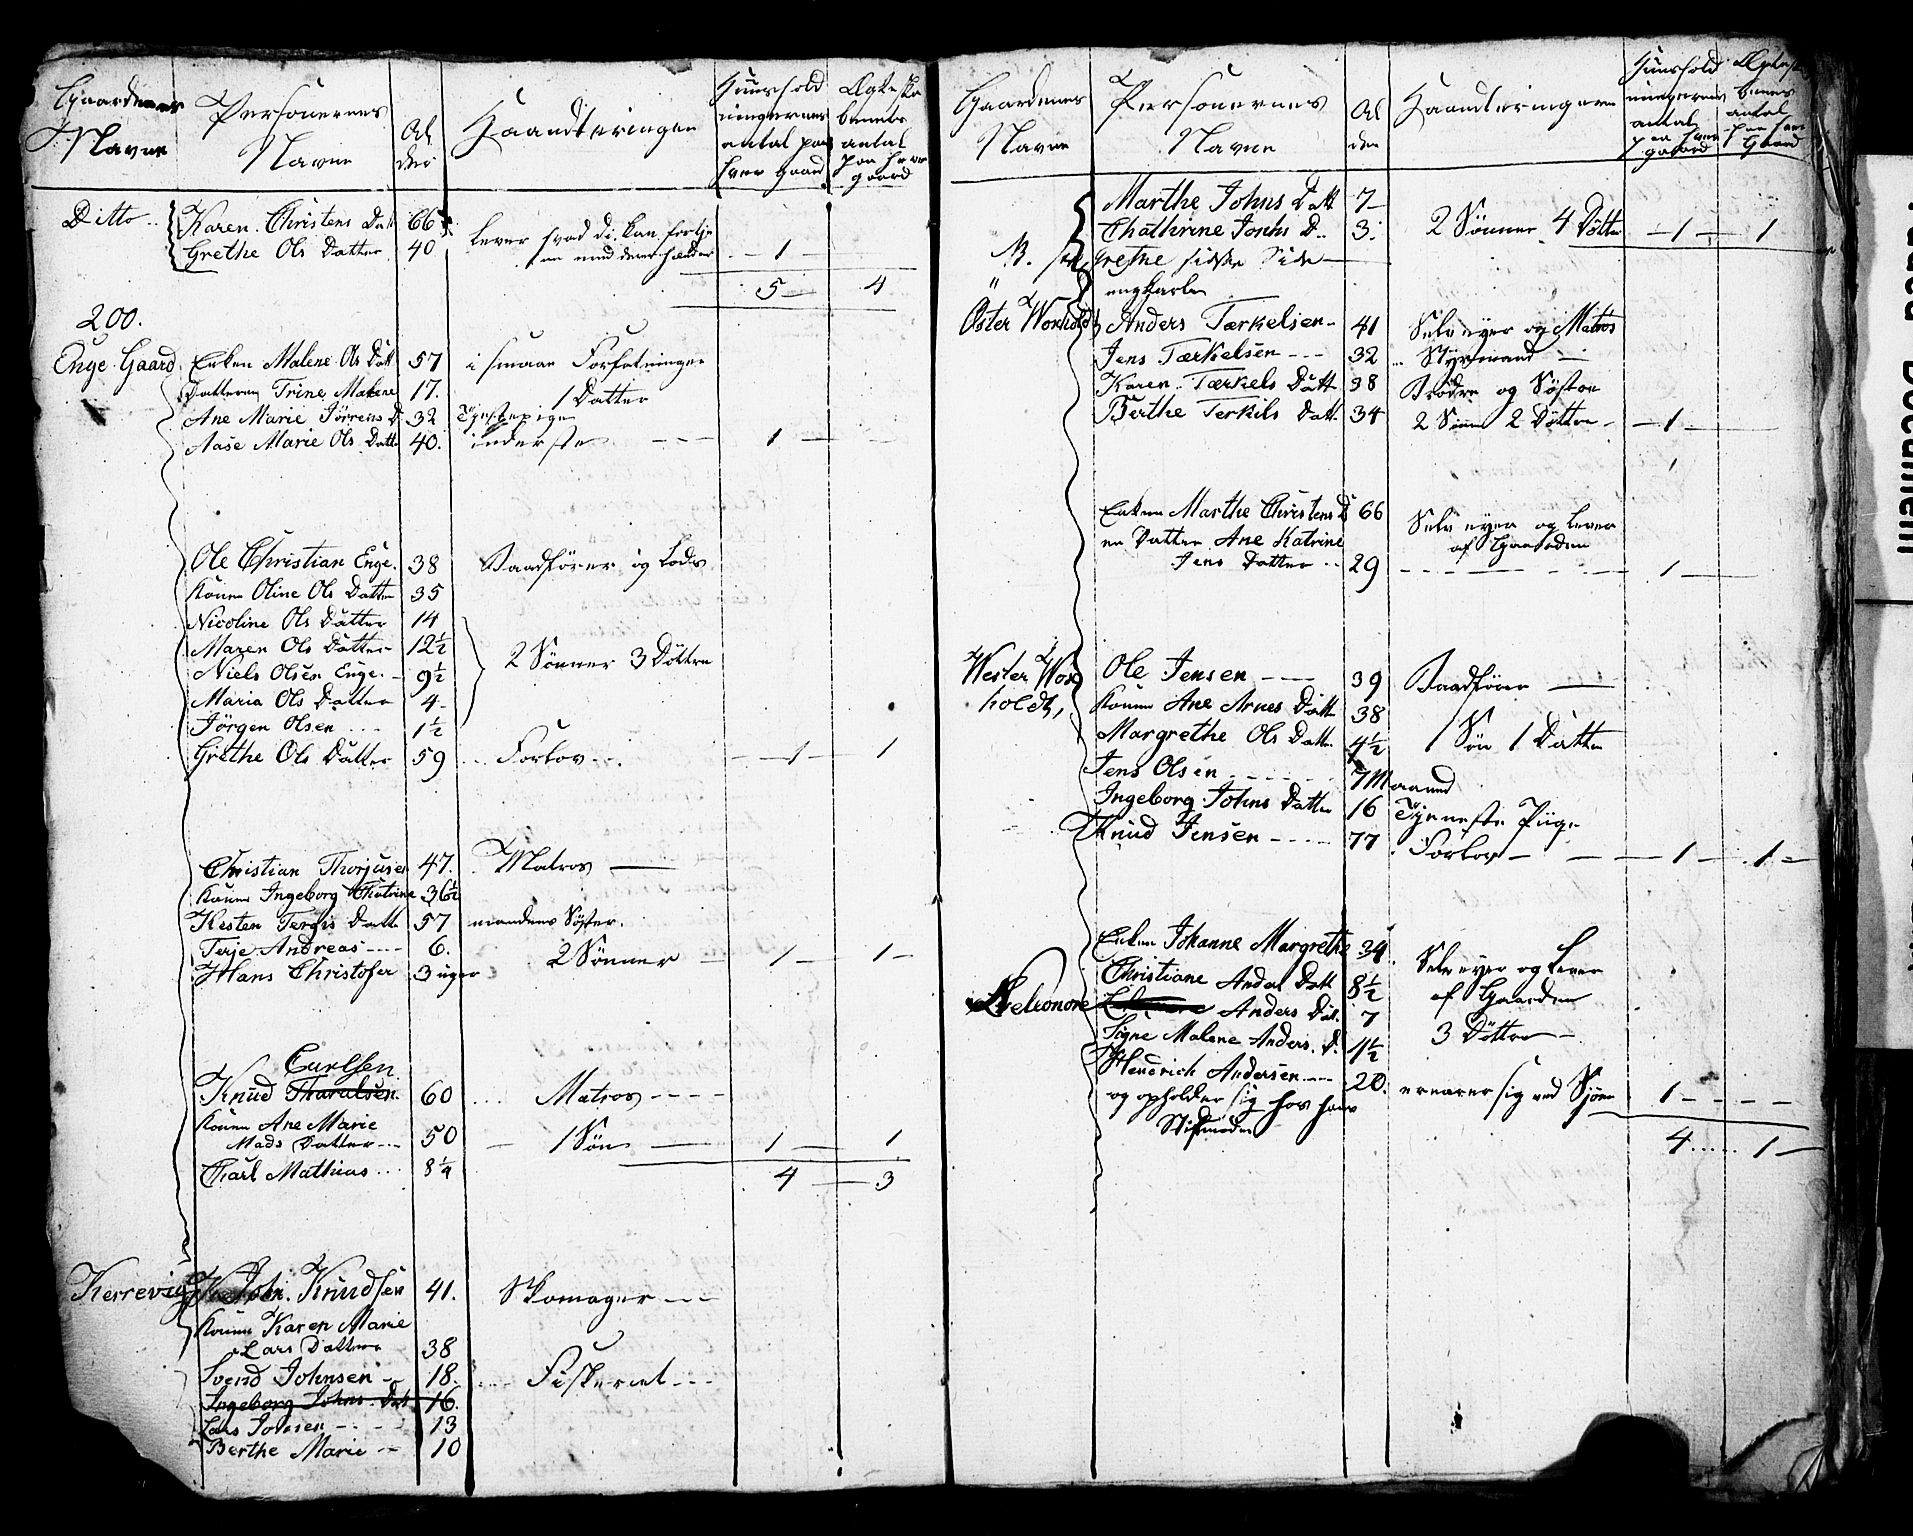 Gaardenes Navne
Personernes Navne
Alder
Haandteringen
Huusholdningernes antal paa hver Gaard
Ægteskabernes antal paa hver gaard
Ditto
Karen Christens Datt 66
Lever hvad di kan fortjene med deres hænder
Grethe Ols Datter 40 1
5 4
200.
Enge Gaard
Enken Malene Ols Datt 57 i smaae Forfatninger
Datteren Trine Malene 17. 1 Datter
Ane Marie Jörrens D 32 Tjenstepige
Aase Marie Ols Datt 40. inderste 1
Ole Christian Enge 38 Baadförer og Lods
Konen Oline Ols Datter 35
Nicoline Ols Datter 14
Maren Ols Datter 12½
2 Sönner 3 Döttre
Niels Olsen Enge 9½
Maria Ols Datter 4
Jörgen Olsen 1½
Grethe Ols Datter 59 Forlov 1 1
Christian Thorjusen 47. Matros
Konen Ingeborg Chatrine 36½
Kesten Terjis Datt 57 mandens Söster.
Terje Andreas 6.
2 Sönner 1 1
Hans Christofer 3 uger
Carlsen
Knud Tharalsen 60 Matros
Konen Ane Marie
Mads Datter 50 1 Sön 1 1
Charl Mathias 8¼
4 3
Kerrevig
John Knudsen 41. Skomager
Konen Karen Marie
Lars Datter 38
Svend Johnsen 18. Fiskeriet
Ingeborg Johns Datt 16.
Lars Johnsen 13
Berthe Marie 10
Gaardenes Navne
Personernes Navne
Alder
Haandteringen
Huusholdningernes antal paa hver gaard
Ægteskabernes antal paa hver Gaard
Marthe Johns Datt 7
Chathrine Johns D. 3. 2 Sönner 4 Döttre 1 1
sidste Side
ungkarle
Öster Worholdt
Anders Tærkelsen 41 Selveyer og Matros
Jens Tærkelsen 32 Styrmand
Karen Tærkels Datt 38 Brödre og Söstre
Berthe Terkils Datt 34 2 Sönn 2 Döttre 1
Enken Marthe Christens D 66 Selveyer og Lever af Gaarden
en Datter Ane Katrine
Jens Datter 29 1
Wester Worholdt,
Ole Jensen 39 Baadförer
Konen Ane Arnes Datt 38
Margrethe Ols Datter 4½ 1 Sön 1 Datter
Jens Olsen 7 Maaned
Ingeborg Johns Datter 16 Tjeneste Piige
Knud Jensen 77 Forlov 1 1
Enken Johanne Margrethe 34 Selveyer og Lever af Gaarden
Christiane Anders Datt 8½
Eleonore Anders Datt. 7
3 Döttre
Signe Malene Anders. D. 1½
Hendrich Andersen 20. ernærer sig ved Sjöen 1
og opholder sig hos hans Stifmoder
4 1